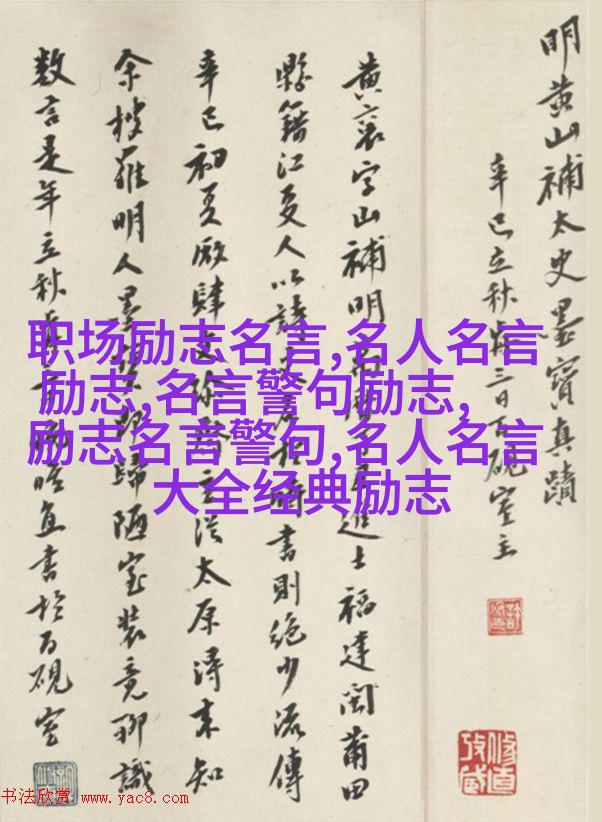 明黄山補太史墨寶真蹟
辛巳立秋後三日百硯室主
黄襄字山補明進士福建閩莆田
縣籍江夏人以詩書則絶少流傳
辛巳初夏廠肆主從太原得来知
余搜羅明人墨歸陋室装竟聊識
数言是年立秋書於百硯室
职场励志名言,名人名言
励志,名言警句励志,
励志名言警句,名人名言
大全经典励志
书法欣赏 www.yac8.com